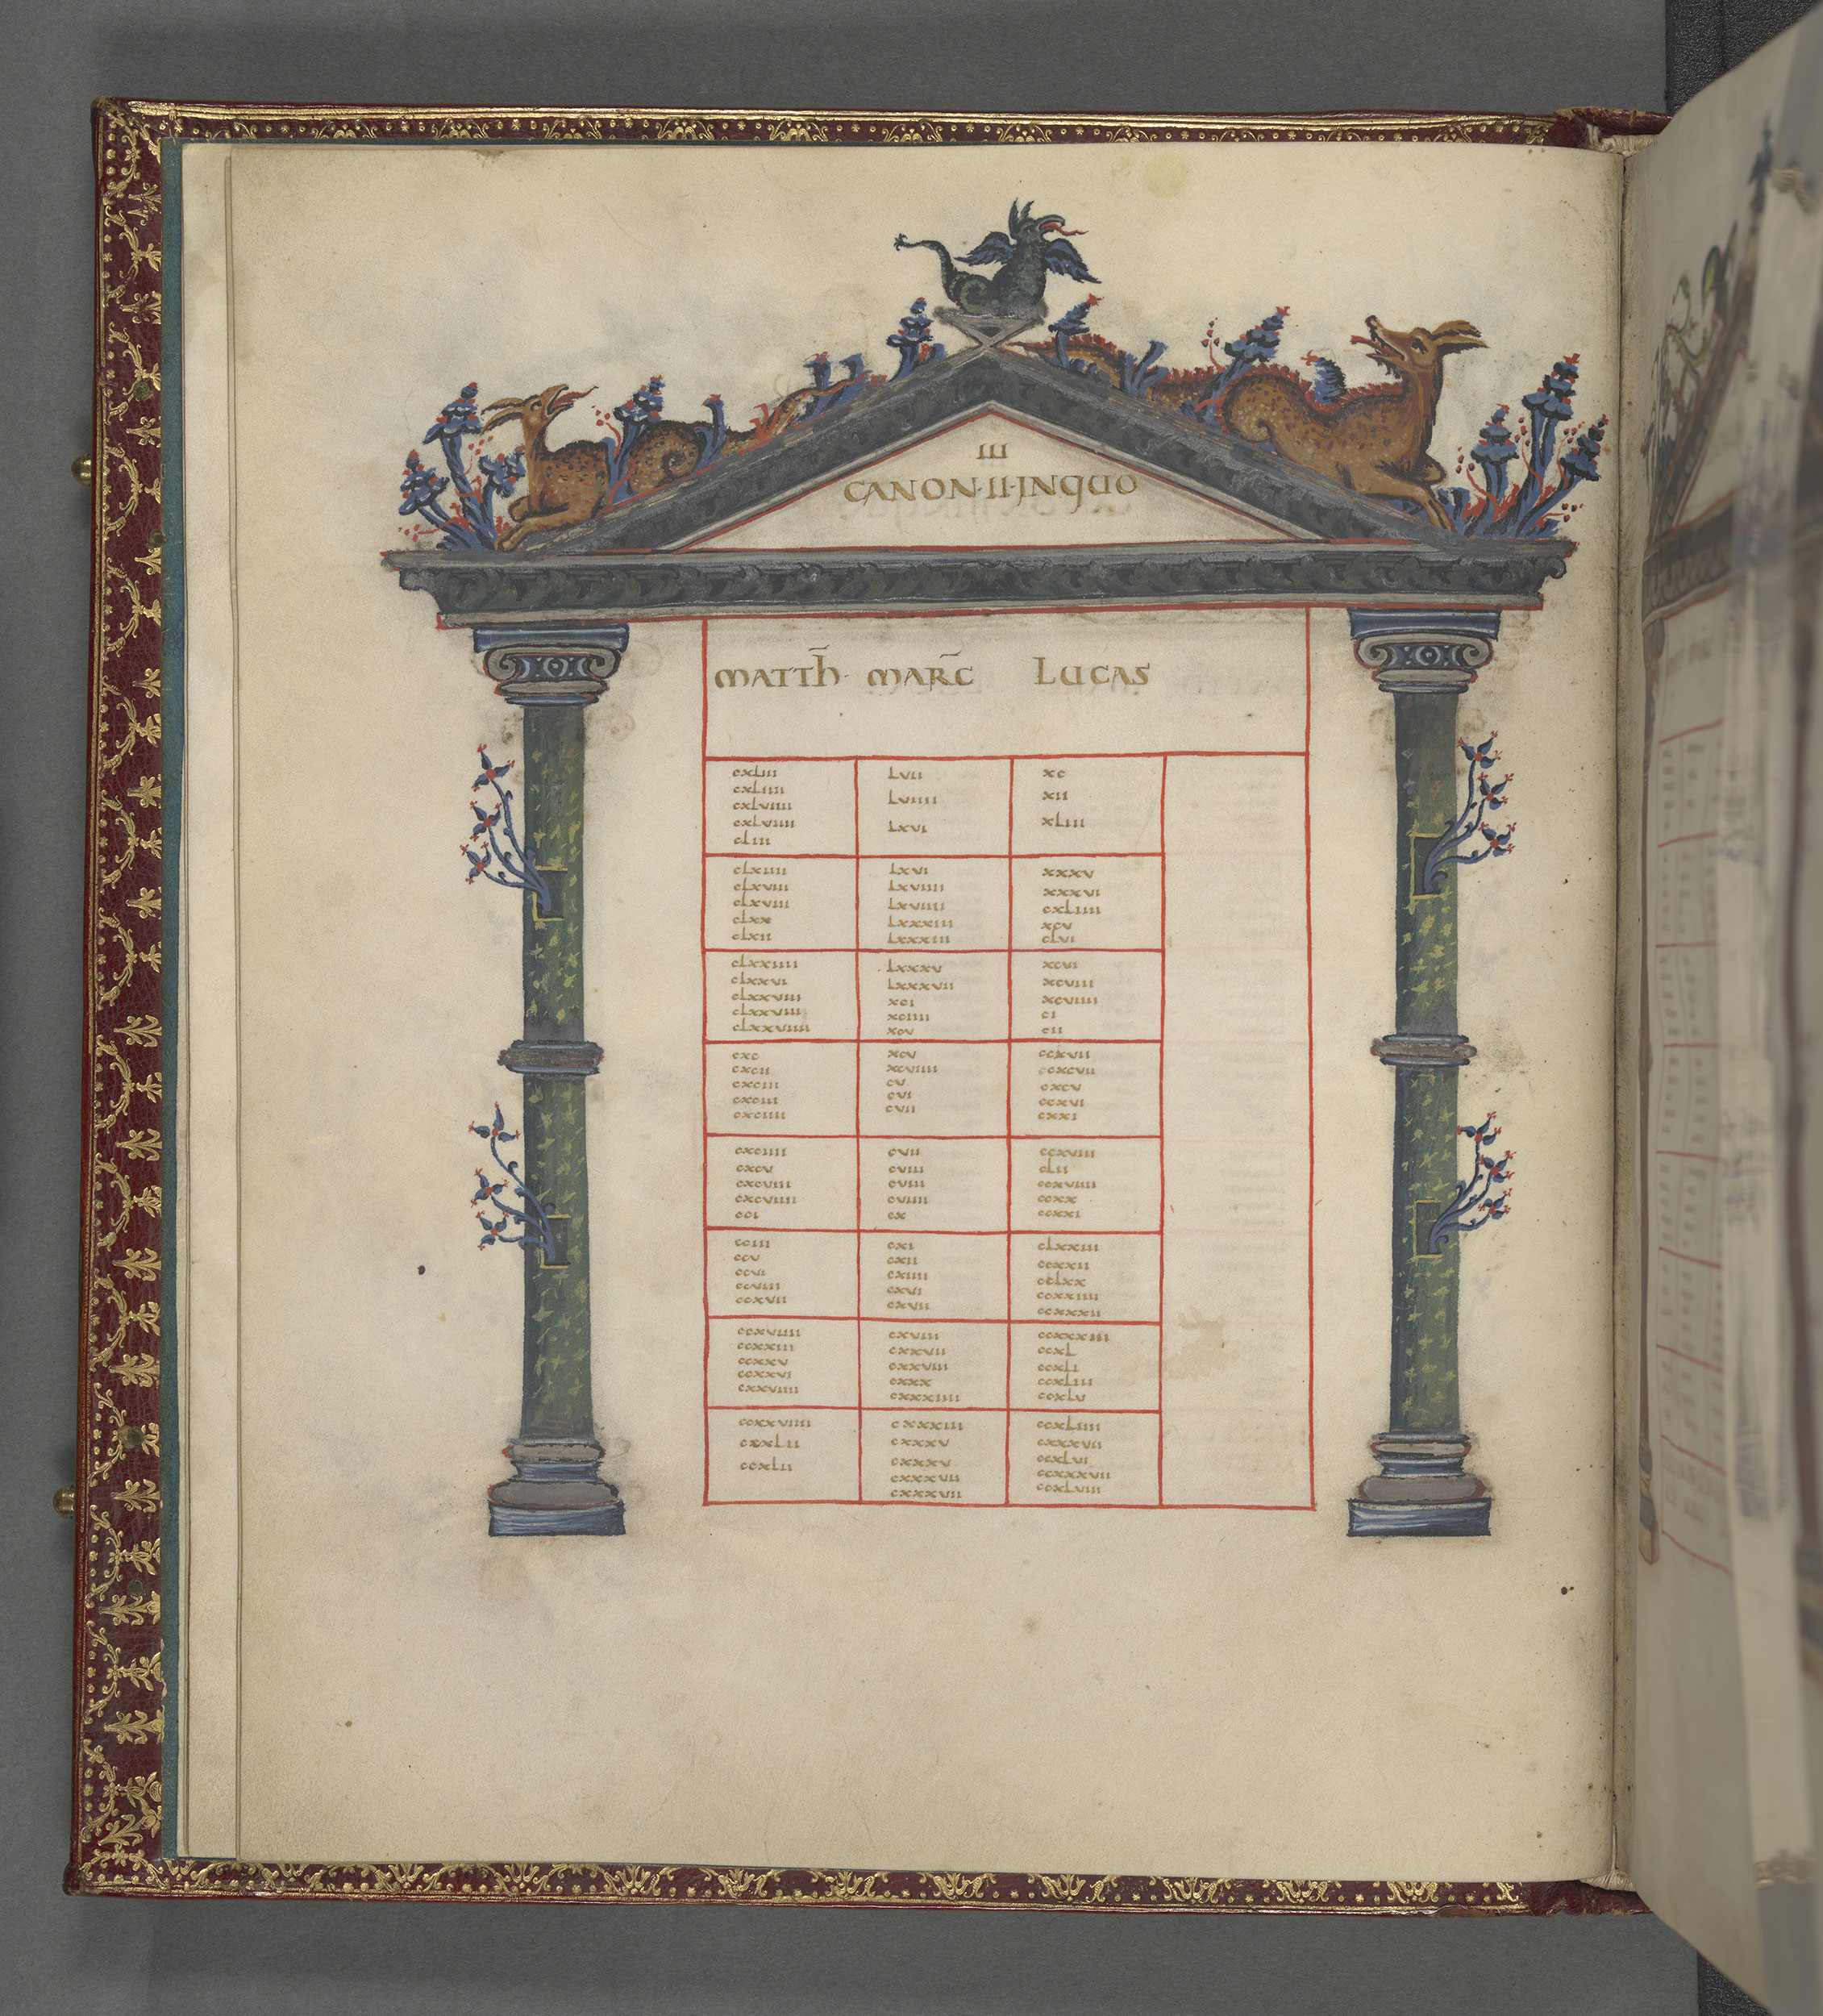 III
CANON·II·INQUO
MATTH̄· MARC̄ LUCAS
cxliii lvii xc
cxliiii lviiii xii
cxlviiii lxvi xliii
cxlviiii
cliii
clxiiii lxvi xxxv
clxviii lxviiii xxxvi
clxviii lxviiii cxliiii
clxx lxxxiii xcv
clxii lxxxiii clvi
clxxiiii lxxxv xcvi
clxxvi lxxxvii xcviii
clxxviii xci xcviiii
clxxviii xciiii ci
clxxviiii xcv cii
cxc xcv ccxvii
cxcii xcviiii ccxcvii
cxciii cv cxcv
cxciii cvi ccxvi
cxciiii cvii cxxi
cxciiii cvii ccxviii
cxcv cviii clii
cxcviii cviii ccxviiii
cxcviiii cviiii ccxx
cci cx ccxxi
cciii cxi clxxiii
ccv cxii ccxxii
ccvi cxiiii cclxx
ccviii cxvi ccxxiiii
ccxvii cxvii ccxxxii
ccxviiii cxviii ccxxxiii
ccxxiii cxxvii ccxl
ccxxv cxxviii ccxli
ccxxvi cxxx ccxliii
cxxviiii cxxxiiii ccxlv
ccxxviiii cxxxiii ccxliiii
ccxlii cxxxv cxxxvii
ccxlii cxxxv ccxlvi
cxxxvii ccxxxvii
cxxxvii ccxlviii